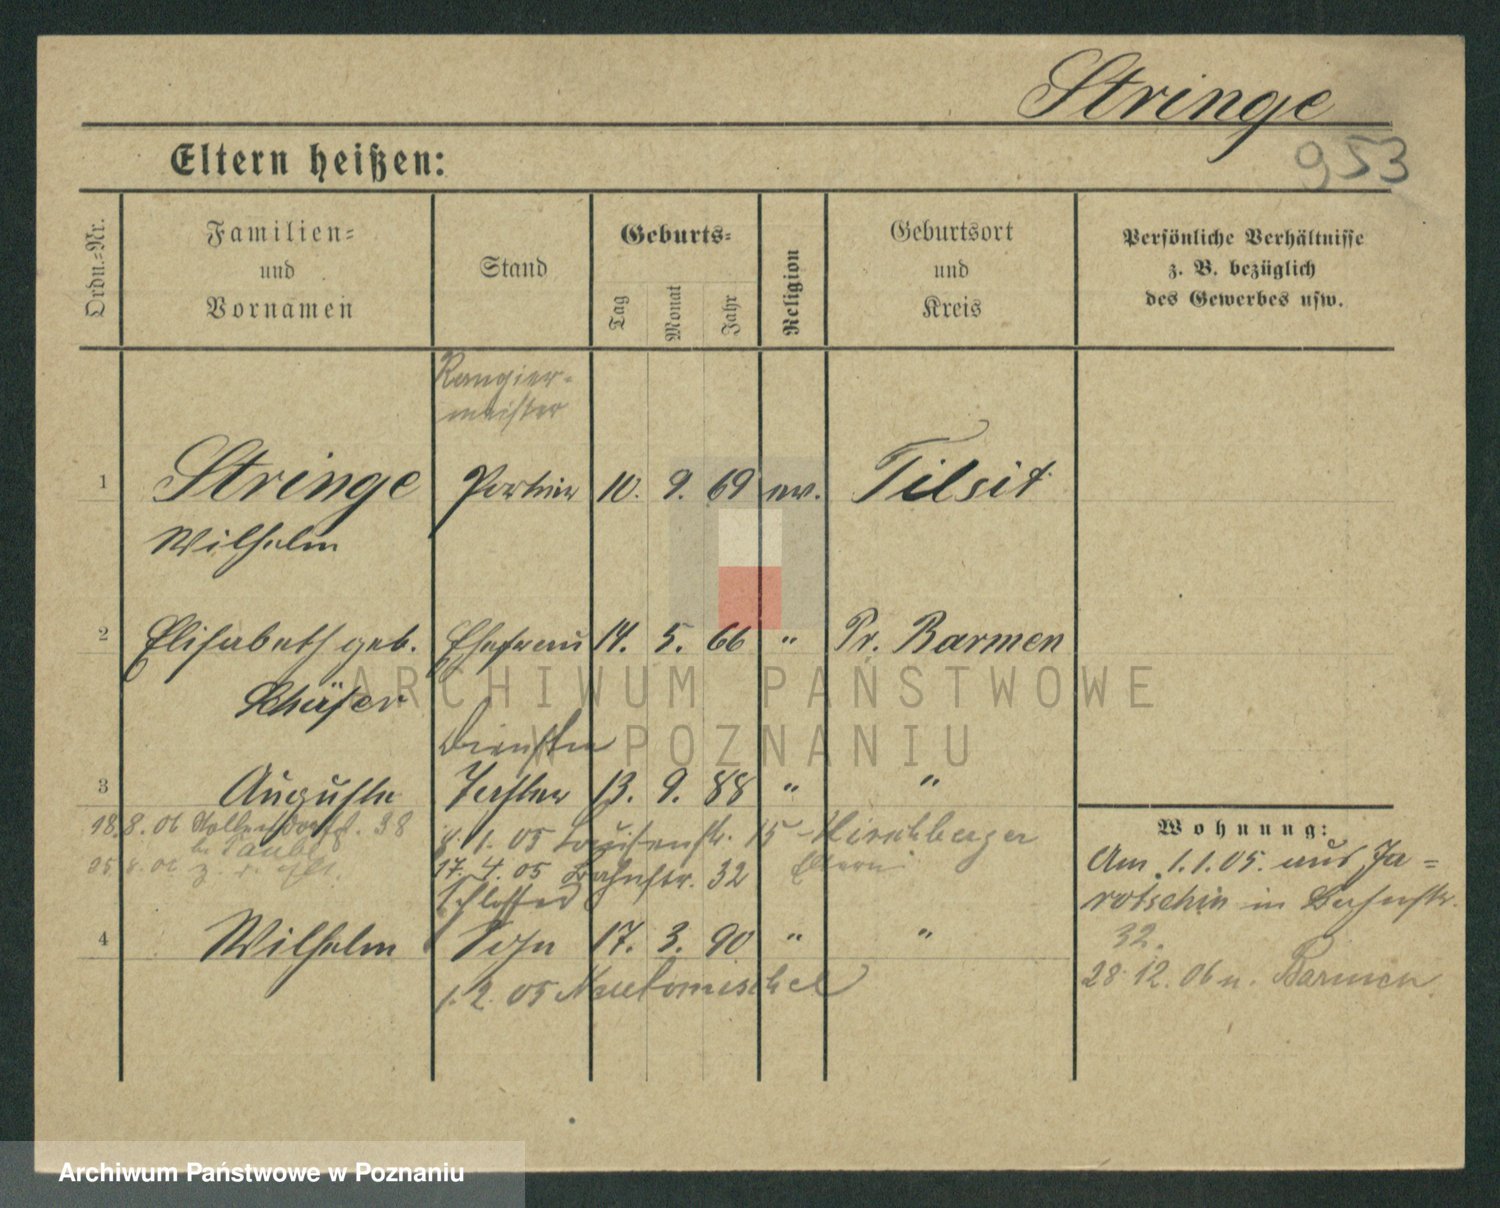 Stringe
953
Eltern heißen:
Ordn.=Nr.
Familien=
und
Vornamen
Stand
Geburts=
Tag
Monat
Jahr
Religion
Geburtsort
und
Kreis
Persönliche Verhältnisse
z. B. bezüglich
des Gewerbes usw.
Rangier-
meister
1 Stringe Portier 10. 9. 69 ev. Tilsit
Wilhelm
2 Elisabeth geb. Ehefrau 14. 5. 66 " Pr. Barmen
Schäfer
3 Auguste Tochter 13. 9. 88 " "
18.8.06 38
8. 1. 05 Louisenstr. 15 Hirschberger
Eltern
17. 4. 05 Bahnstr. 32
Schlosser
4 Wilhelm Sohn 17. 3. 90 " "
1. 2. 05 Neutomischel
Wohnung:
Am 1.1.05. aus Ja=
rotschin in Bahnstr.
32.
28.12.06 n. Barmen
ARCHIWUM PAŃSTWOWE
W POZNANIU
Archiwum Państwowe w Poznaniu